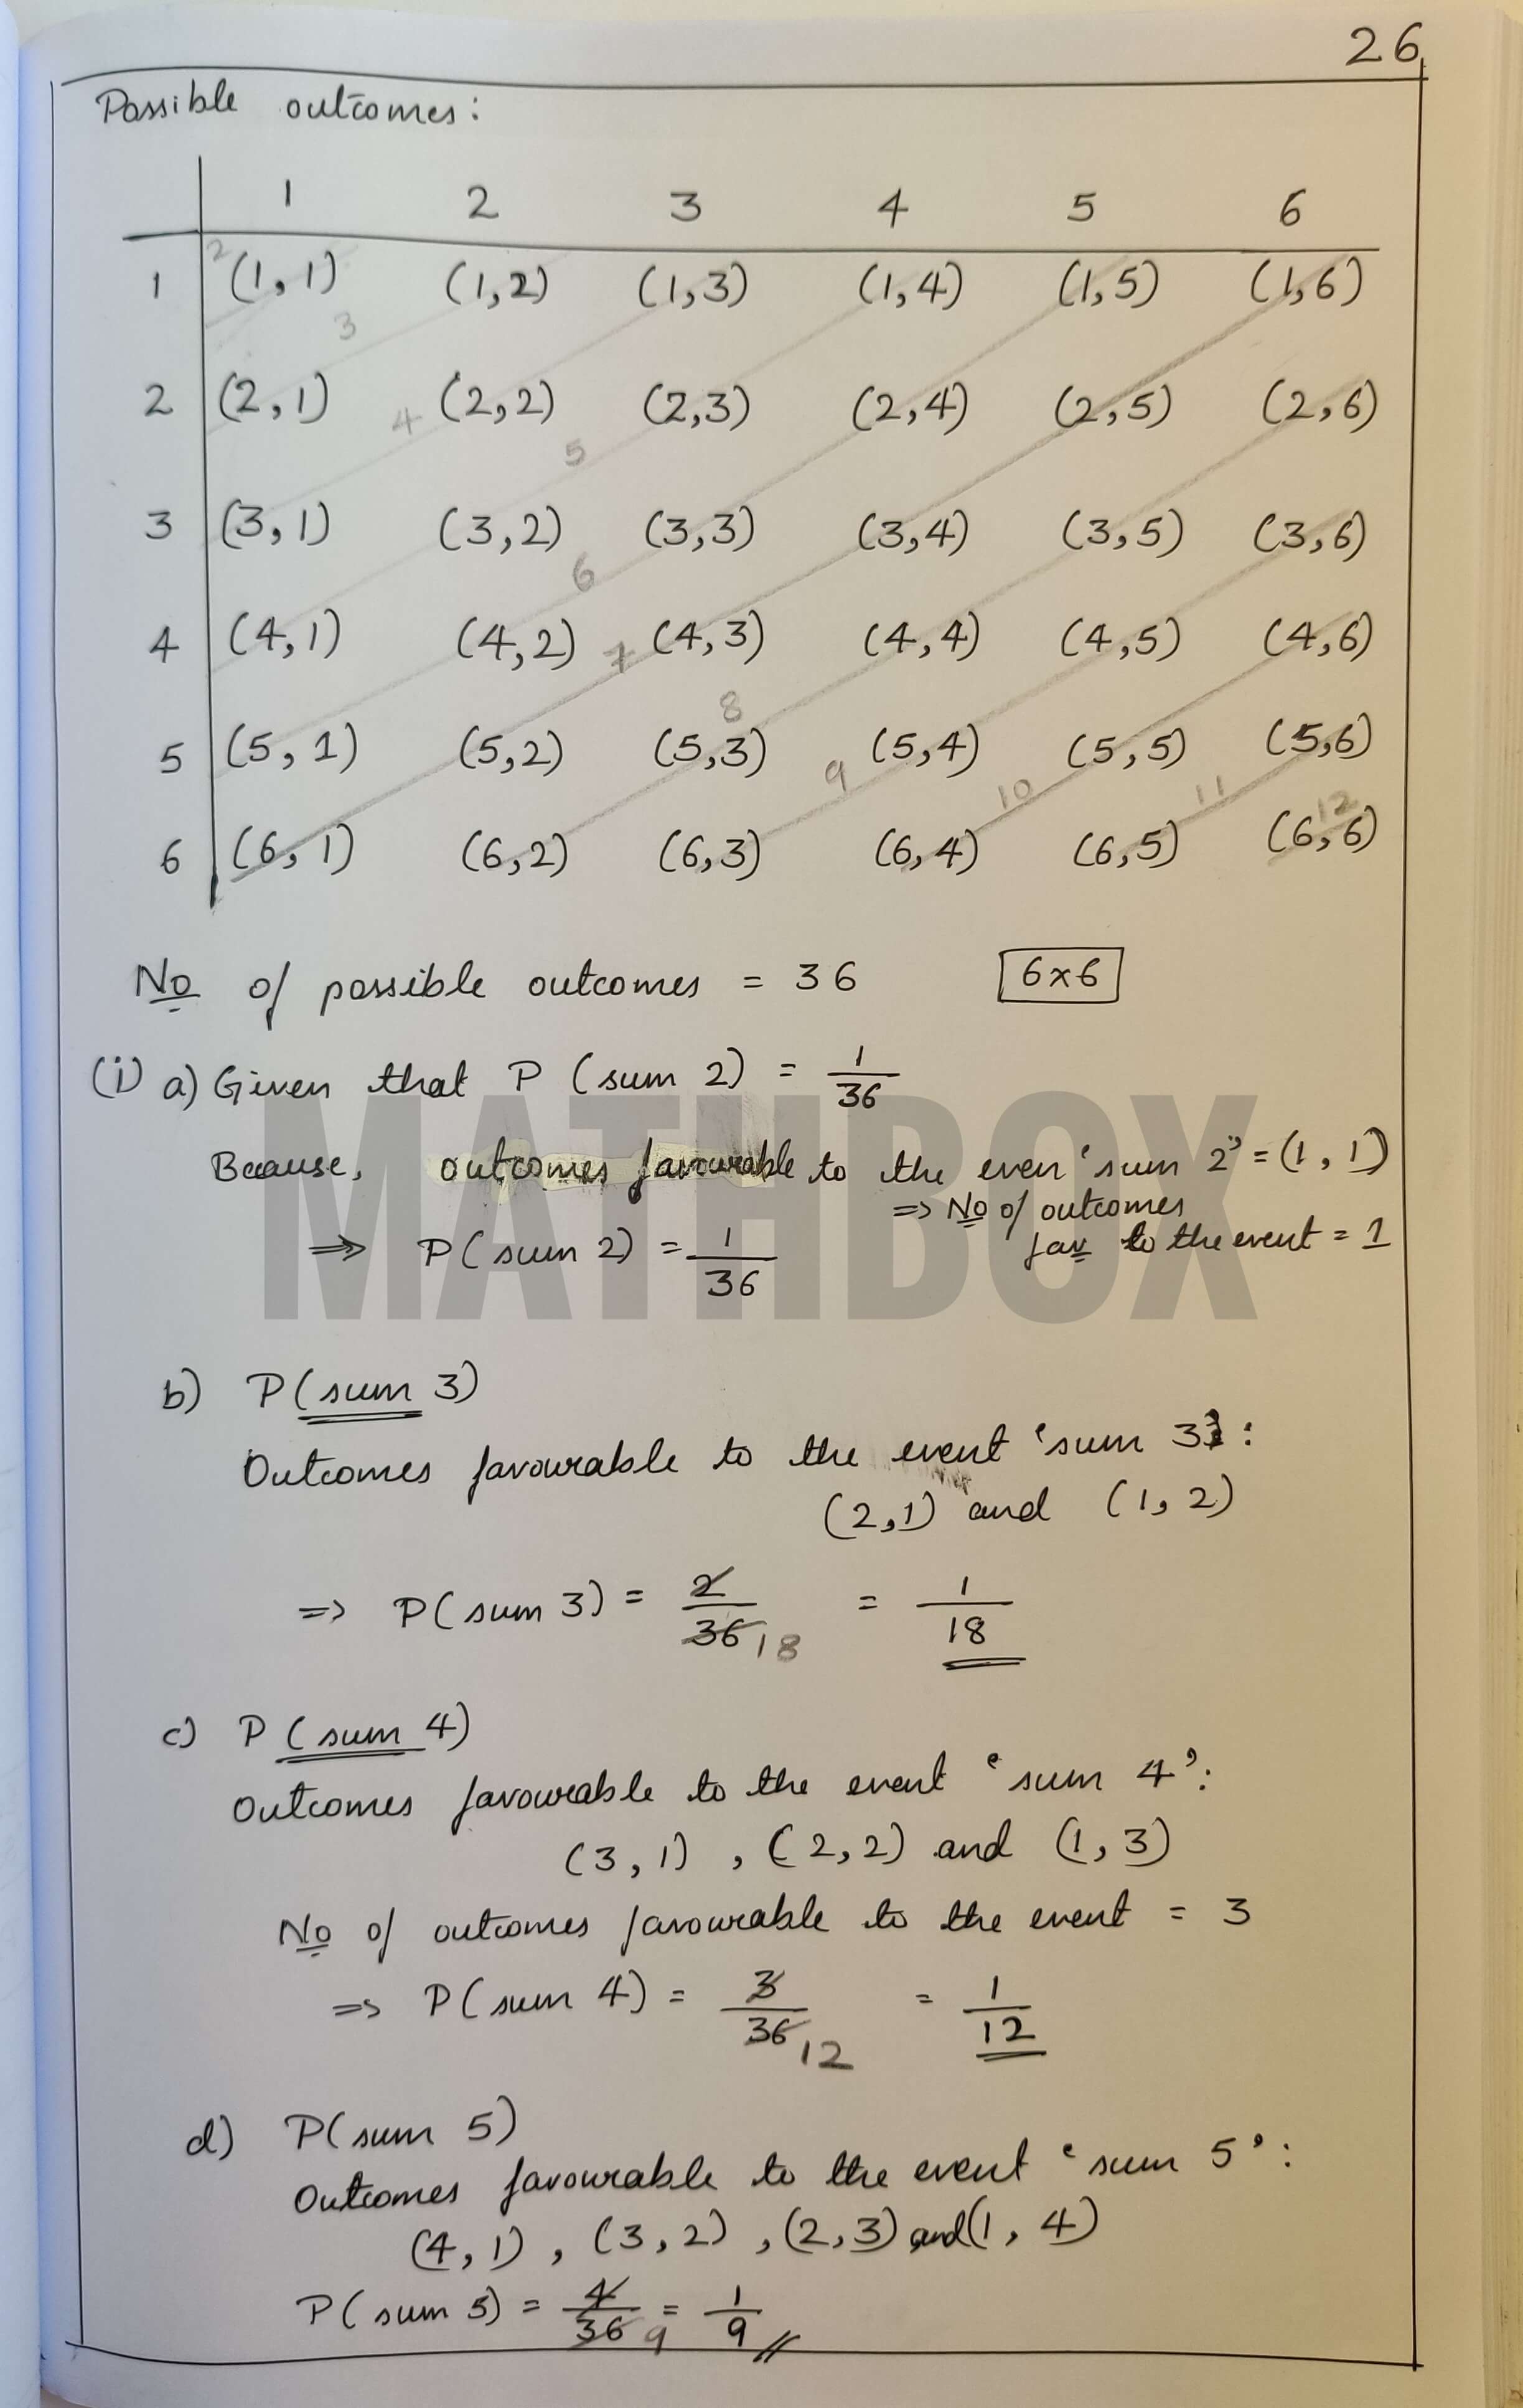 26
Possible outcomes:
1 2 3 4 5 6
1 (1,1) (1,2) (1,3) (1,4) (1,5) (1,6)
2 (2,1) (2,2) (2,3) (2,4) (2,5) (2,6)
3 (3,1) (3,2) (3,3) (3,4) (3,5) (3,6)
4 (4,1) (4,2) (4,3) (4,4) (4,5) (4,6)
5 (5,1) (5,2) (5,3) (5,4) (5,5) (5,6)
6 (6,1) (6,2) (6,3) (6,4) (6,5) (6,6)
2 3 4 5 6 7 8 9 10 11 12
No of possible outcomes = 36 6x6
(i) a) Given that P (sum 2) = 1/36
MATHBOX
Because, outcomes favourable to the even 'sum 2' = (1, 1)
=> No of outcomes
fav to the event = 1
=> P(sum 2) = 1/36
b) P(sum 3)
Outcomes favourable to the event 'sum 3':
(2,1) and (1, 2)
=> P(sum 3) = 2/36 18 = 1/18
c) P (sum 4)
Outcomes favourable to the event 'sum 4':
(3,1) , (2,2) and (1,3)
No of outcomes favourable to the event = 3
=> P(sum 4) = 3/36 12 = 1/12
d) P(sum 5)
Outcomes favourable to the event 'sum 5':
(4,1) , (3,2) , (2,3) and (1, 4)
P(sum 5) = 4/36 9 = 1/9